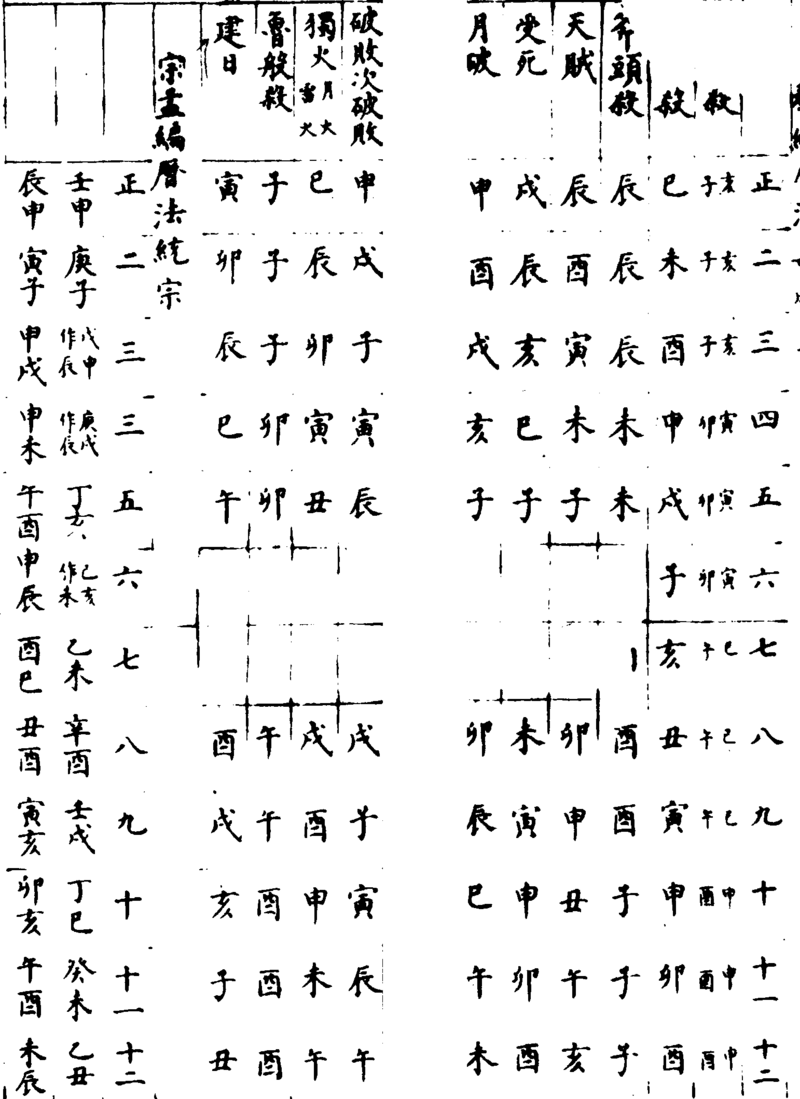 正二三四五六七八九十十一十二
殺亥子亥子亥子寅卯寅卯寅卯巳午巳午巳午申酉申酉申酉
殺巳未酉申戌子亥丑寅申卯酉
斧頭殺辰辰辰未未酉酉子子子
天賊辰酉寅未子卯申丑午亥
受死戌辰亥巳子未寅申卯酉
月破申酉戌亥子卯辰巳午未
破敗次破敗申戌子寅辰戌子寅辰午
獨火月火雷火巳辰卯寅丑戌酉申未午
魯般殺子子子卯卯午午酉酉酉
建日寅卯辰巳午酉戌亥子丑
宗孟編曆法統宗
正二三三五六七八九十十一十二
壬申庚子戊申作辰庚戌作辰丁亥己亥作未乙未辛酉壬戌丁巳癸未乙丑
辰申寅子申戌申未午酉申辰酉巳丑酉寅亥卯亥午酉未辰